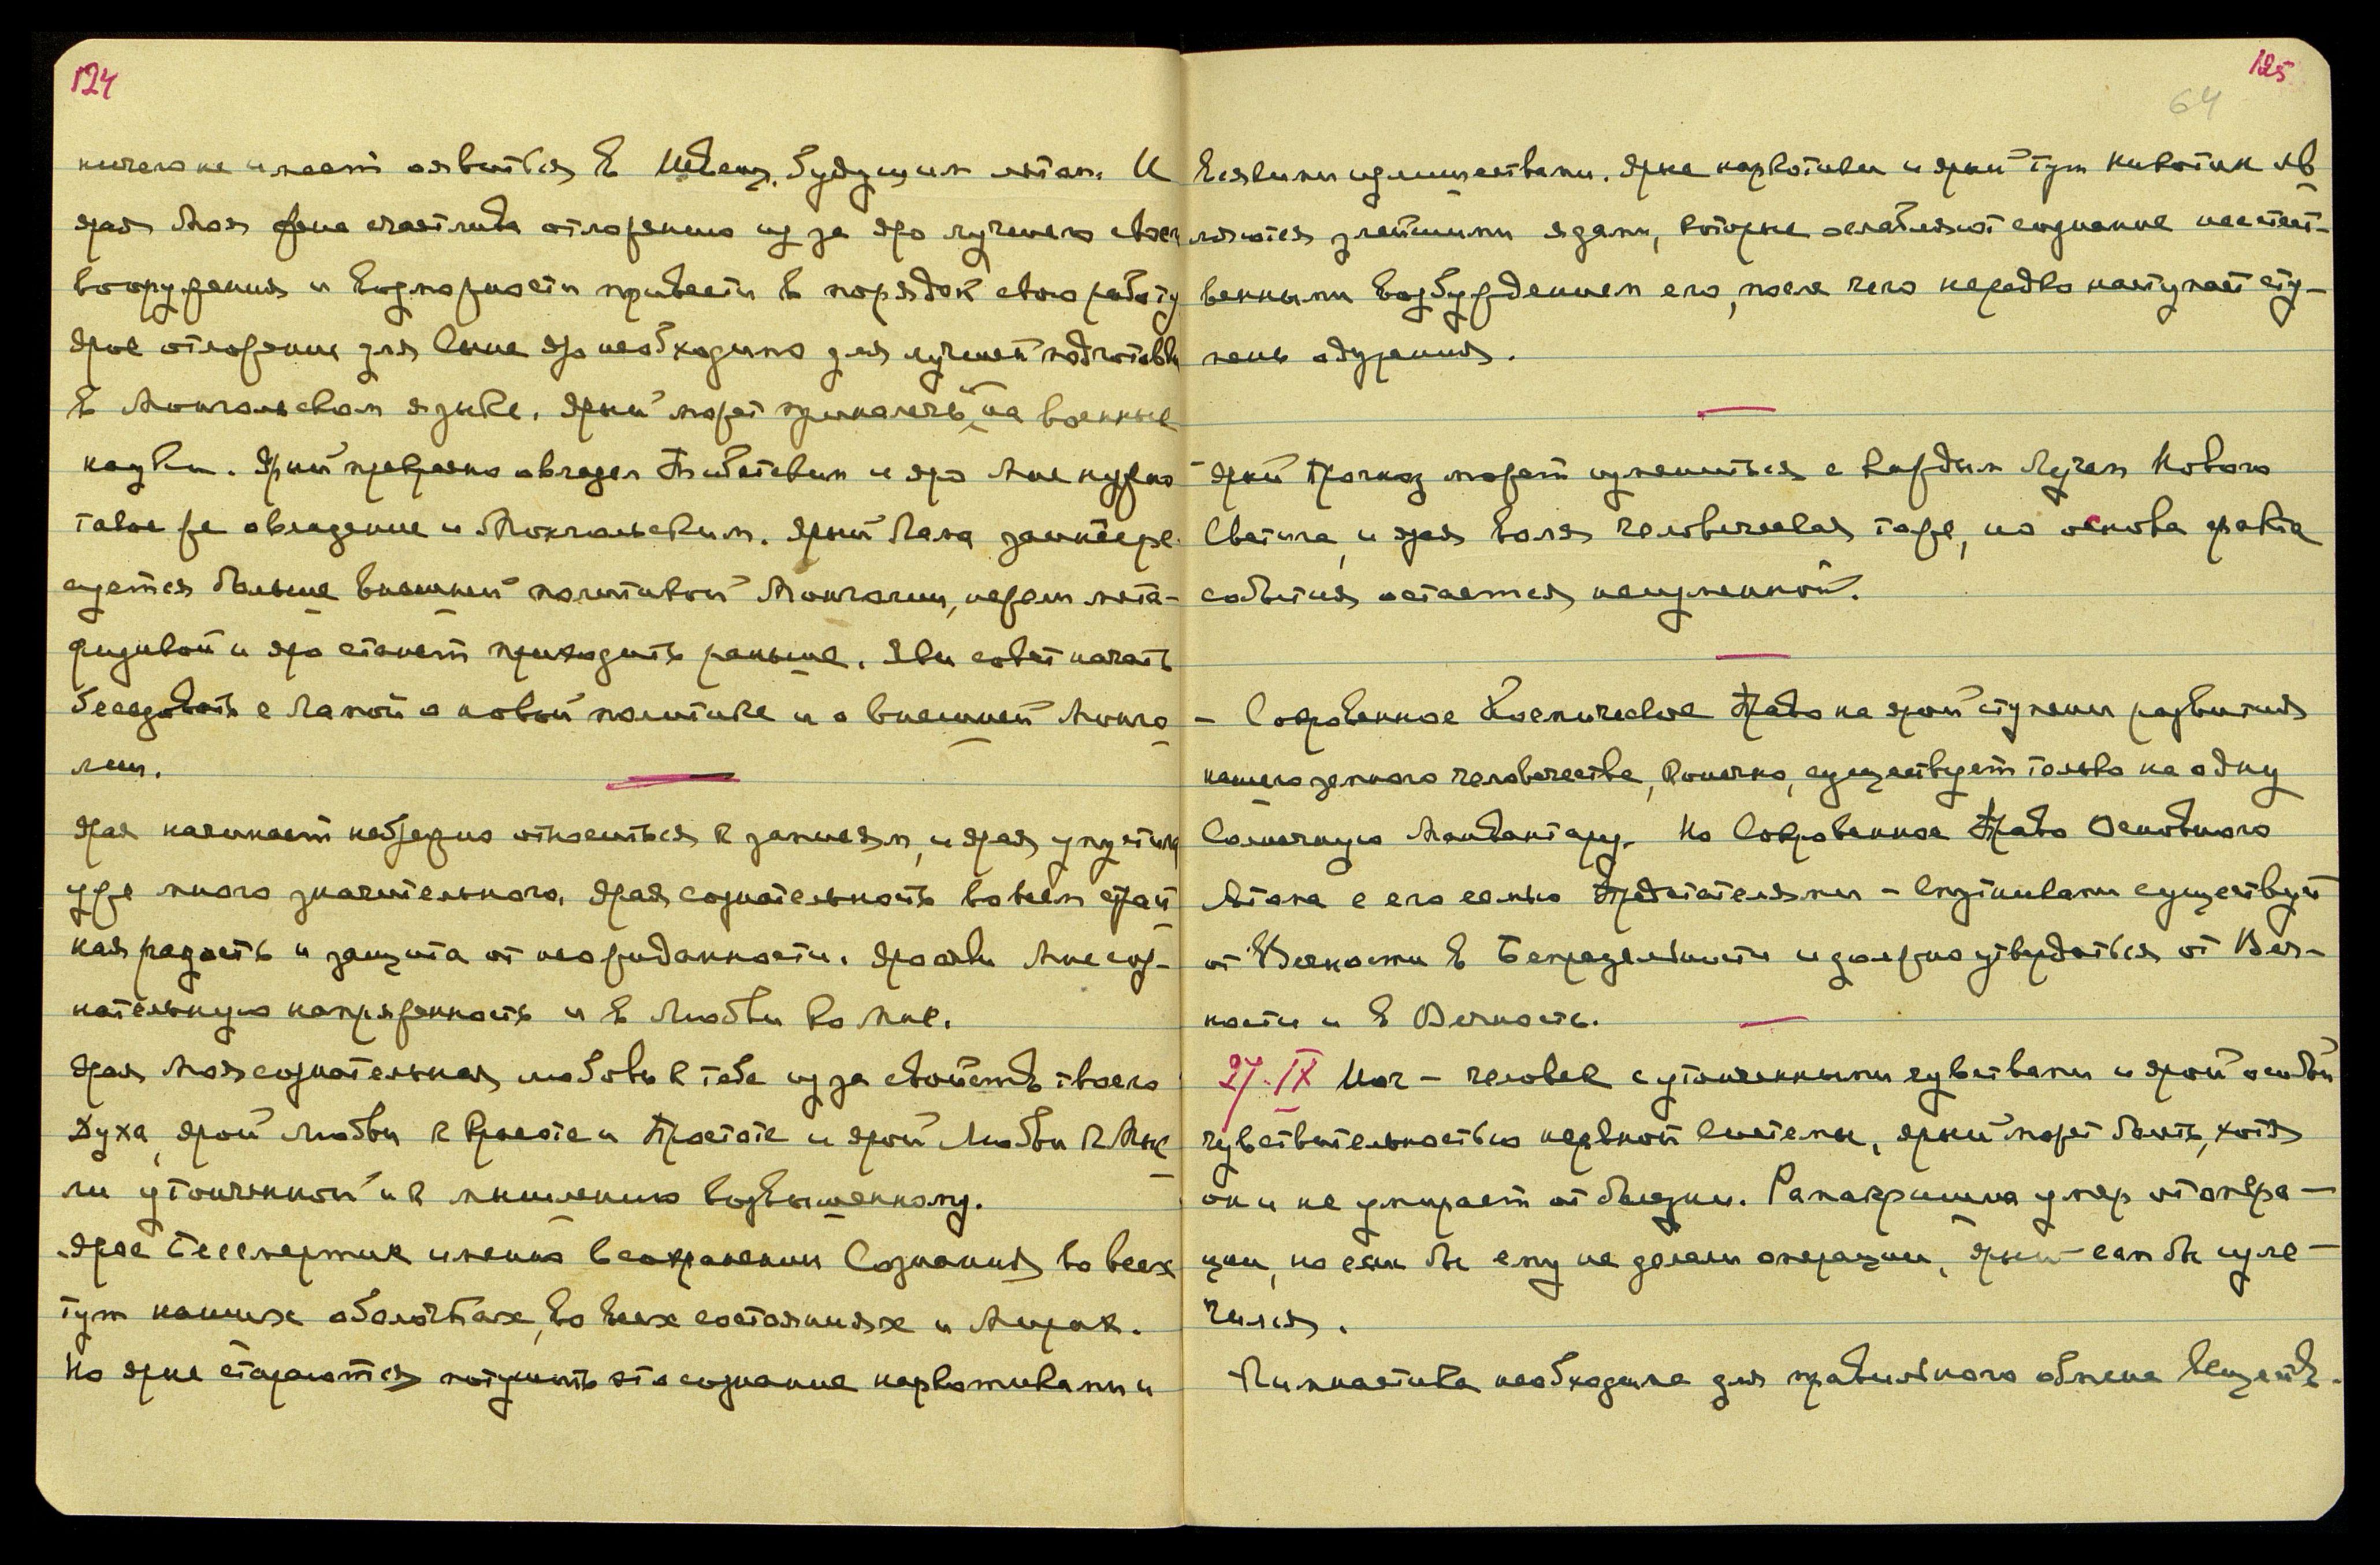 124
ничего не имеет оявиться в Индии будущим летом. И
ярая Моя Жена счастлива отложению из за яро лучшего своего
вооружения и возможности привести в порядок свою работу
Ярое отложение для Сына яро необходимо для лучшей подготовки
в Монгольском языке. Ярый может приналечь на военные
науки. Ярый прекрасно овладел Тибетским и яро Мне нужно
такое же овладение и Монгольским. Ярый Лама заинтере-
суется больше внешней политикой Монголии, нежели мета-
физикой и яро станет приходить раньше. Яви совет начать
беседовать с Ламой о новой политике и о внешней Монго
лии.
Ярая начинает небрежно относиться к записям, и ярая упустила
уже много значительного. Ярая сознательность во всем край
няя радость и защита от неожиданности. Яро яви Мне соз-
нательную напряженность и в Любви ко Мне.
Ярая Моя сознательная любовь к тебе из за свойств твоего
Духа, ярой Любви к Красоте и Простоте и ярой Любви к Мыс
ли утонченной и к мышлению возвышенному.
Ярое Бессмертие именно в сохранении Сознания во всех
тут наших оболочках, во всех состояниях и Мирах.
Но ярые стараются потушить это сознание наркотиками и
125
64
всякими излишествами. Ярые наркотики и ярый тут никотин яв
ляются злейшими ядами, которые ослабляют сознание неестест-
венным возбуждением его, после чего нередко наступает сту-
пень одурения.
Ярый Прогноз может измениться с каждым Лучем Нового
Светила, и ярая воля человеческая тоже, но основа факта
события остается неизменной.
- Сокровенное Космическое Право на ярой ступени развития
нашего земного человечества, конечно, существует только на одну
Солнечную Манвантару. Но Сокровенное Право Основного
Атома с его семью Предстателями - Спутниками существует
от Вечности в Беспредельности и должно утвердиться от Веч-
ности и в Вечность.
27.IX Йог - человек с утонченными чувствами и ярой особой
чувствительностью нервной системы, ярый может болеть, хотя
он и не умирает от болезни. Рамакришна умер от опера-
ции, но если бы ему не делали операции, ярый сам бы изле-
чился.
Гимнастика необходима для правильного обмена веществ.